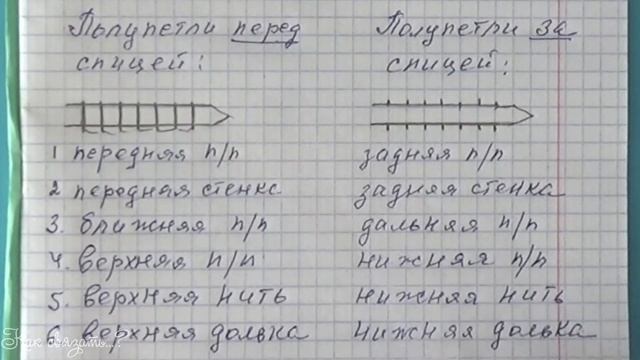 Полупетли перед
спицей:
1 передняя п/п
2 передная стенкс
3. ближняя п/п
4. верхняя п/п
5. верхняя нить
6. верхняя долька
Полупетри за
спицей:
задняя п/п
задняя стенка
дальняя п/п
нижняя п/п
нижняя нить
нижняя долька
Как связать...?